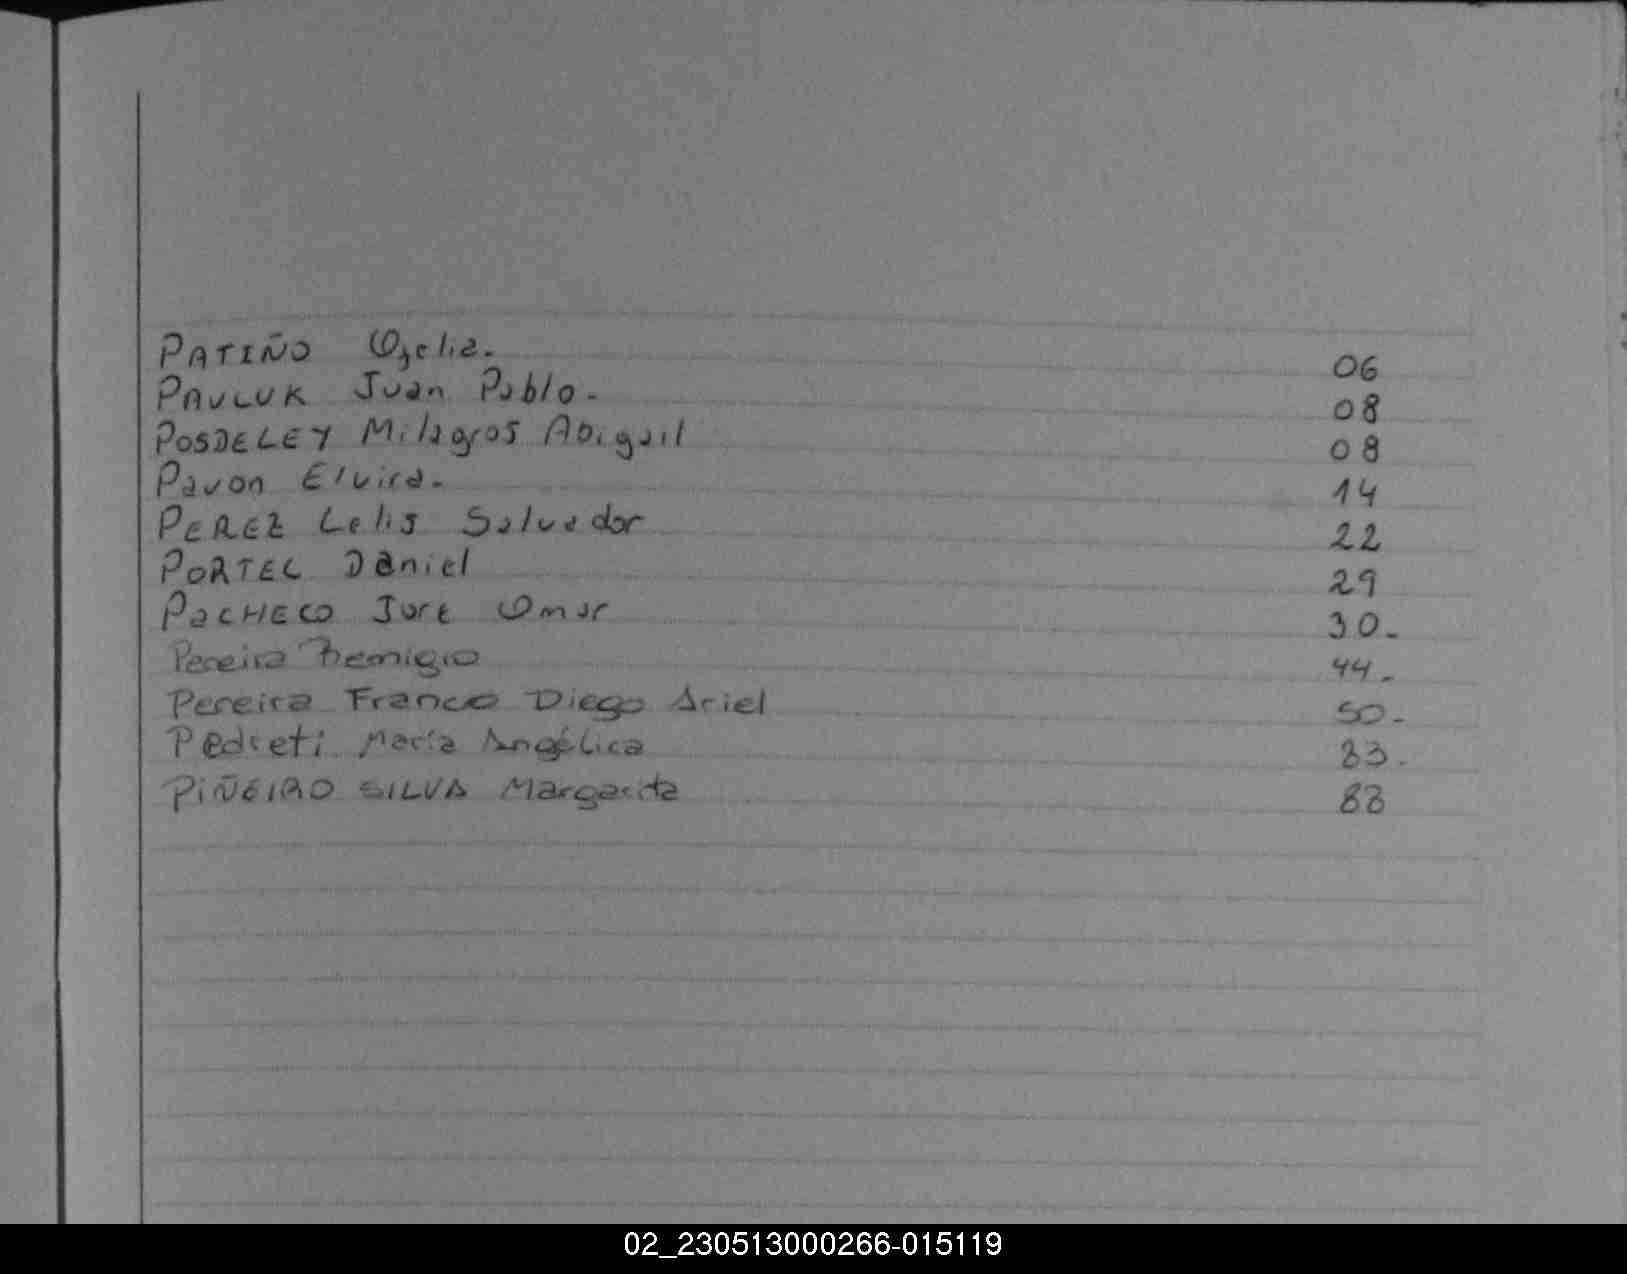 PATIÑO Ofelia. 06
PAULUK Juan Pablo. 08
POSDELEY Milagros Abigail 08
Pavon Elvira. 14
PEREZ Lelis Salvador 22
PORTEL Daniel 29
PACHECO José Omar 30.
Pereira Remigio 44.
Pereira Franco Diego Ariel 50.
Pedreti María Angélica 83.
PIÑEIRO SILVA Margarita 88
02_230513000266-015119